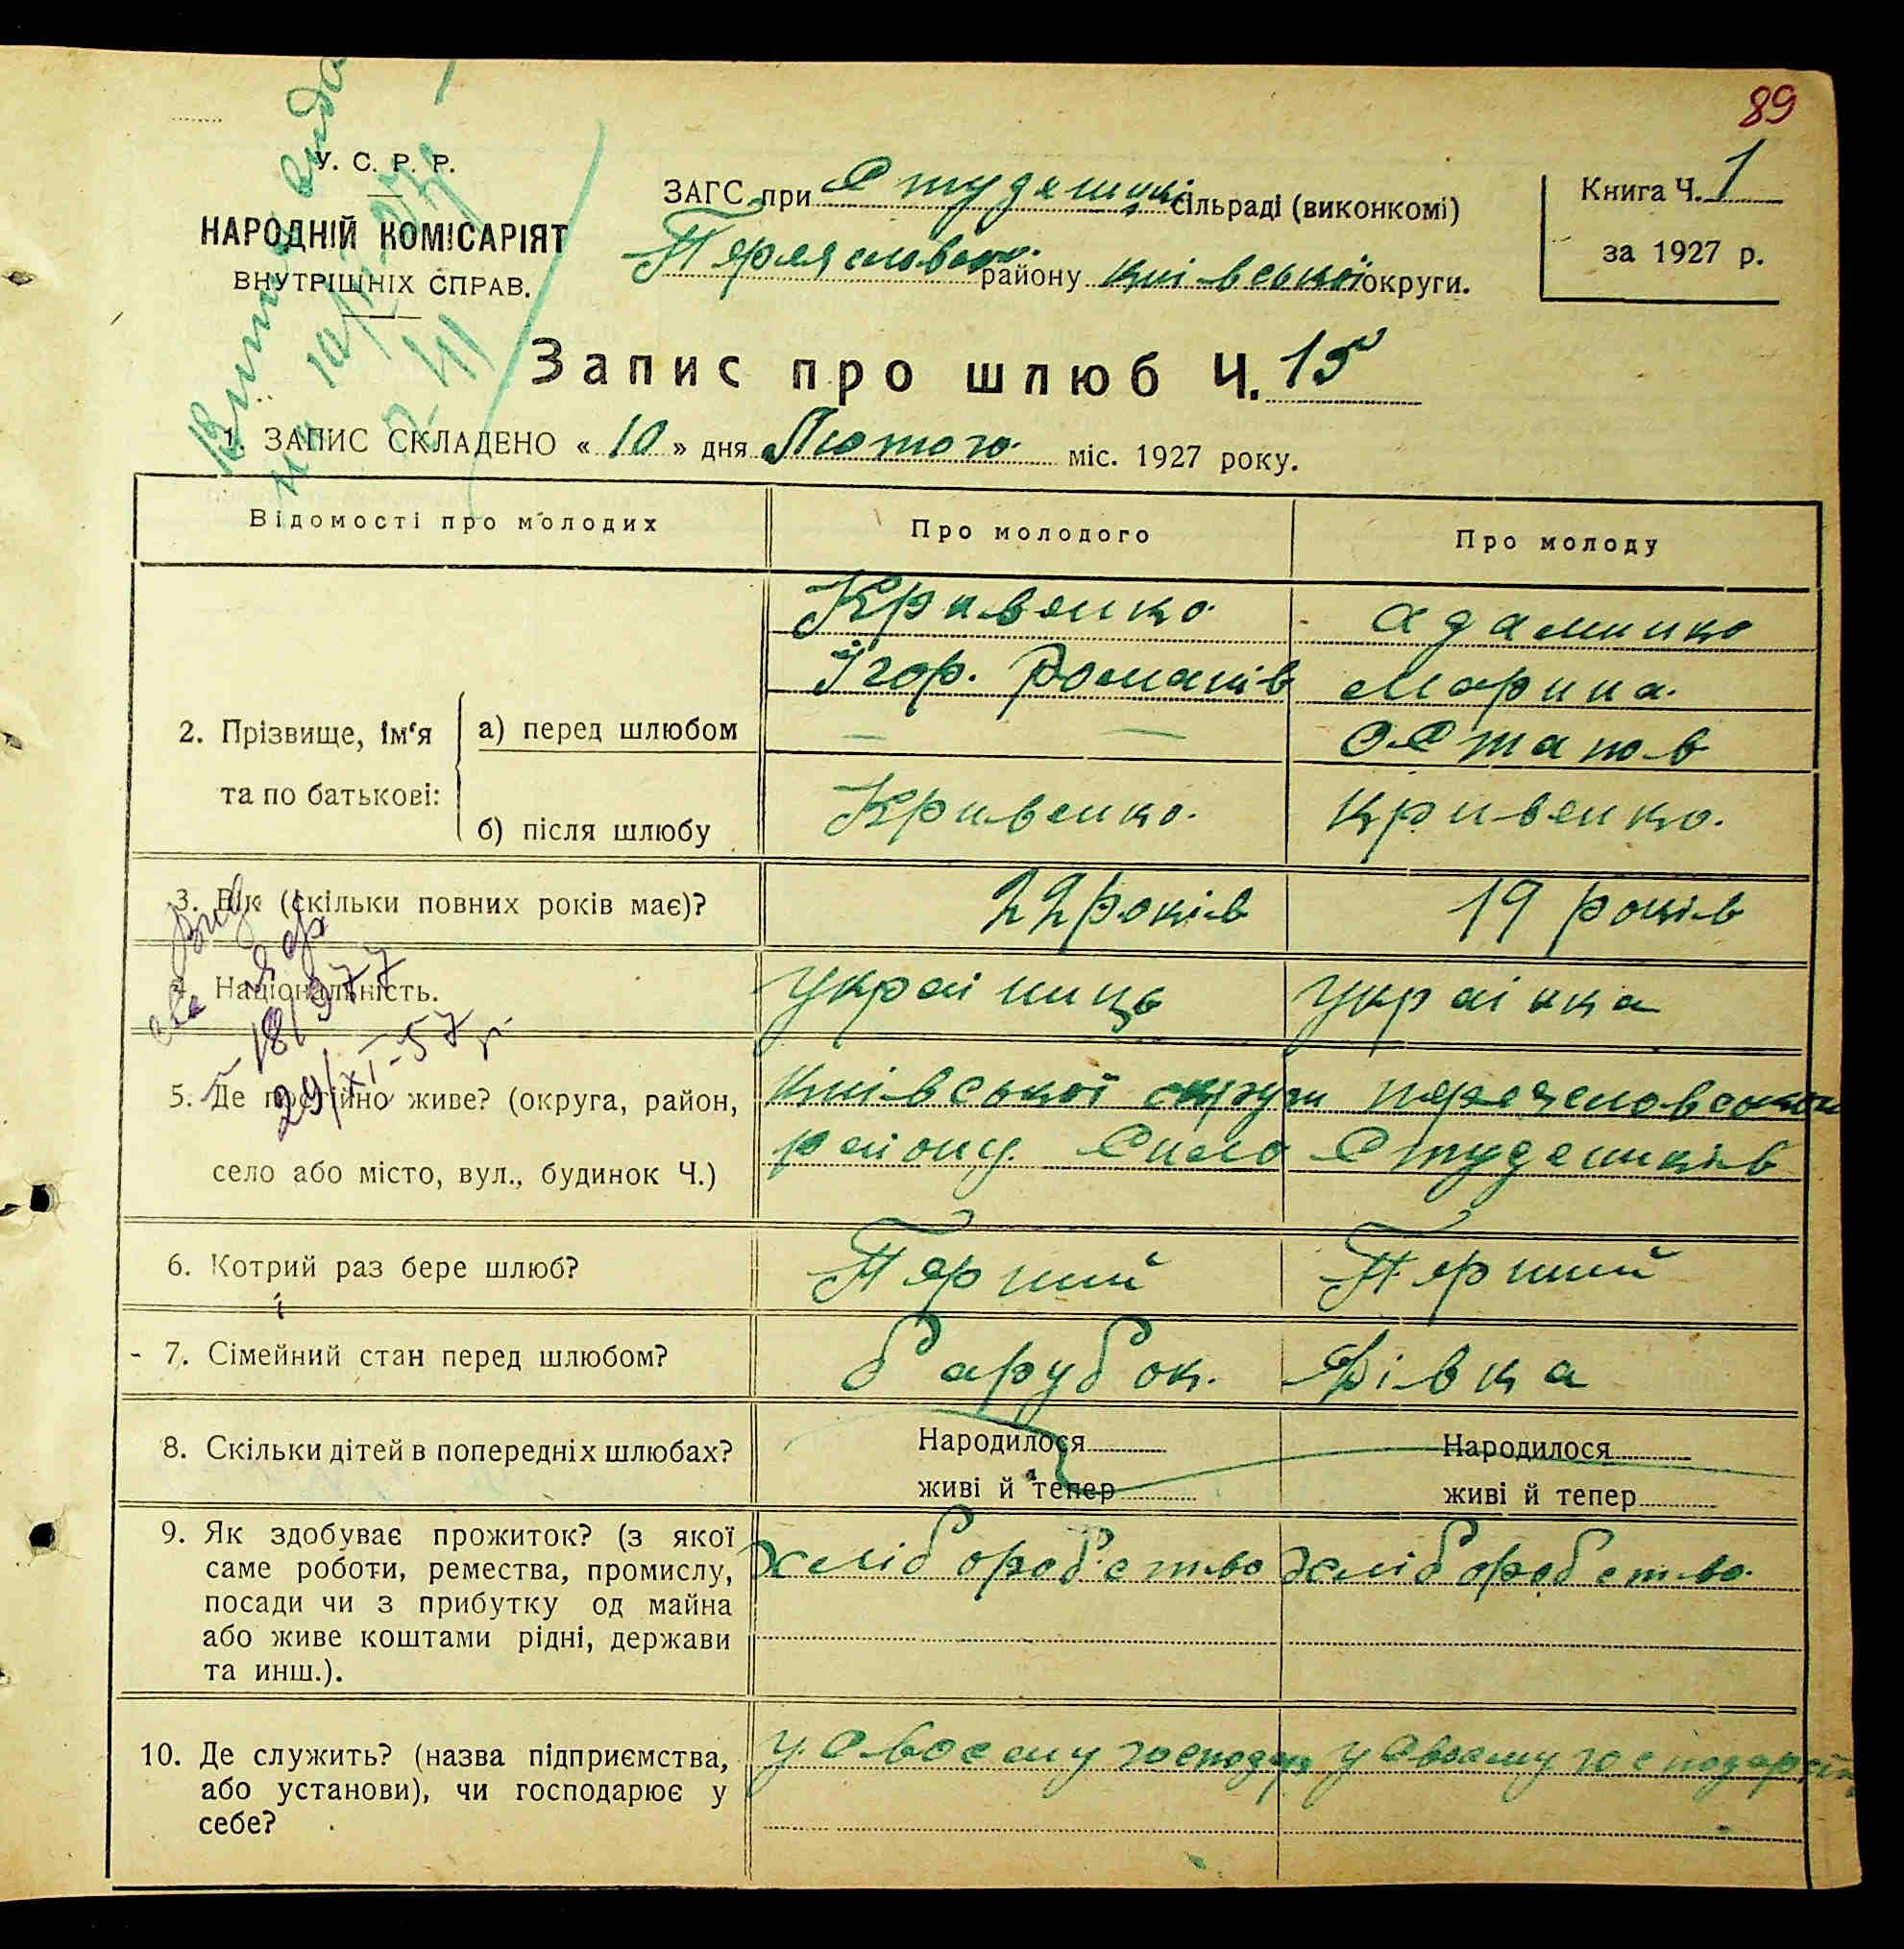 89
У. С. Р. Р.
НАРОДНІЙ КОМІСАРІЯТ
ВНУТРІШНІХ СПРАВ.
ЗАГС при Студениц. сільраді (виконкомі)
району київської округи.
Книга Ч. 1
за 1927 р.
Запис про шлюб Ч. 15
1. ЗАПИС СКЛАДЕНО « 10 » дня Лютого міс. 1927 року.
Відомості про молодих Про молодого Про молоду
2. Прізвище, ім‘я та по батькові:
а) перед шлюбом
Кривенко Адаменко
Ігор. Романів Марина
Остапов
б) після шлюбу Кривенко. Кривенко.
3. Вік (скільки повних років має)? 22 років 19 років
4. Національність. Українець Українка
18/977
29/XI-57 р.
5. Де постійно живе? (округа, район, Київської округи
село або місто, вул., будинок Ч.) району Село Студеників
6. Котрий раз бере шлюб? Перший Перший
7. Сімейний стан перед шлюбом? барубок. Дівка
8. Скільки дітей в попередніх шлюбах? Народилося Народилося
живі й тепер живі й тепер
9. Як здобуває прожиток? (з якої хліборобство хліборобство
саме роботи, ремества, промислу,
посади чи з прибутку од майна
або живе коштами рідні, держави
та инш.).
10. Де служить? (назва підприємства, у своєму господар у своєму господарстві
або установи), чи господарює у
себе?